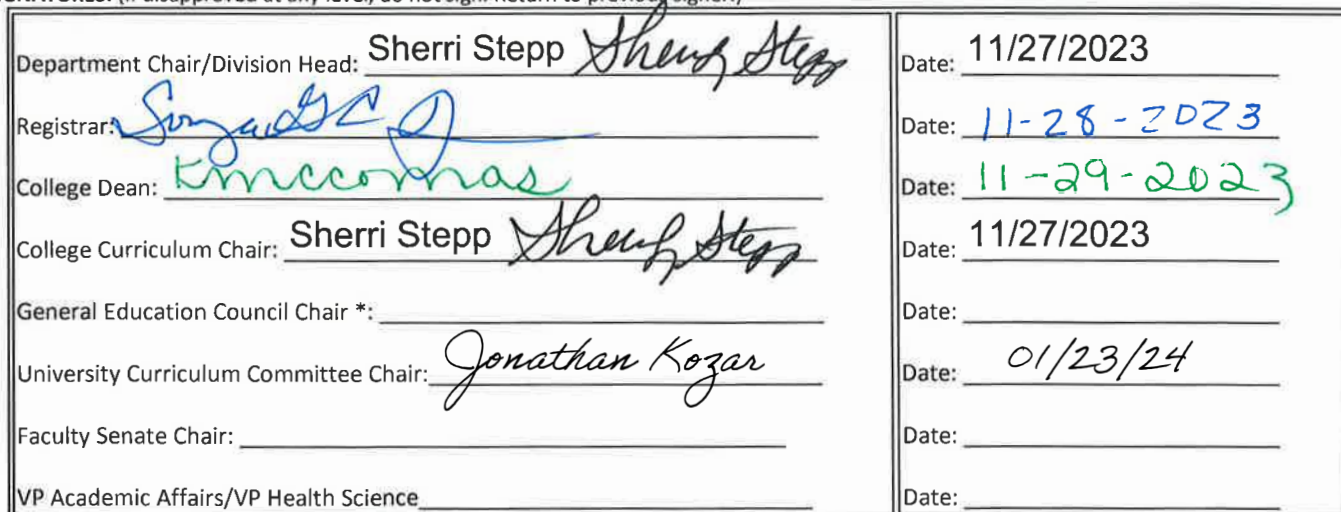 (If disapproved at any level, do not sign. Return to previous signer.)
Department Chair/Division Head: Sherri Stepp Sherri Stepp Date: 11/27/2023
Registrar: Date: 11-28-2023
College Dean: Kmccomas Date: 11-29-2023
College Curriculum Chair: Sherri Stepp Sherri Stepp Date: 11/27/2023
General Education Council Chair *: Date:
University Curriculum Committee Chair: Jonathan Kozar Date: 01/23/24
Faculty Senate Chair: Date:
VP Academic Affairs/VP Health Science Date: